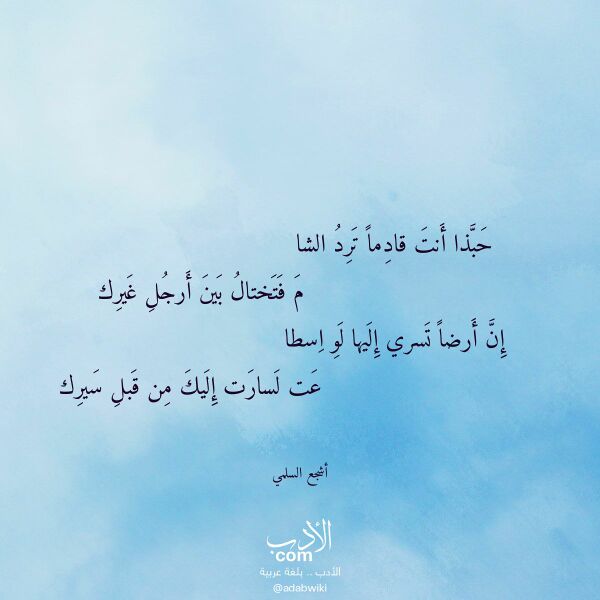 حَبَّذا أَنتَ قادِماً تَرِدُ الشا
مَ فَتَختالُ بَينَ أَرجُلِ غَيرِك
إِنَّ أَرضاً تَسري إِلَيها لَوِ اِسطا
عَت لَسارَت إِلَيكَ مِن قَبلِ سَيرِك
أشجع السلمي
الأدب
com
الأدب .. بلغة عربية
@adabwiki